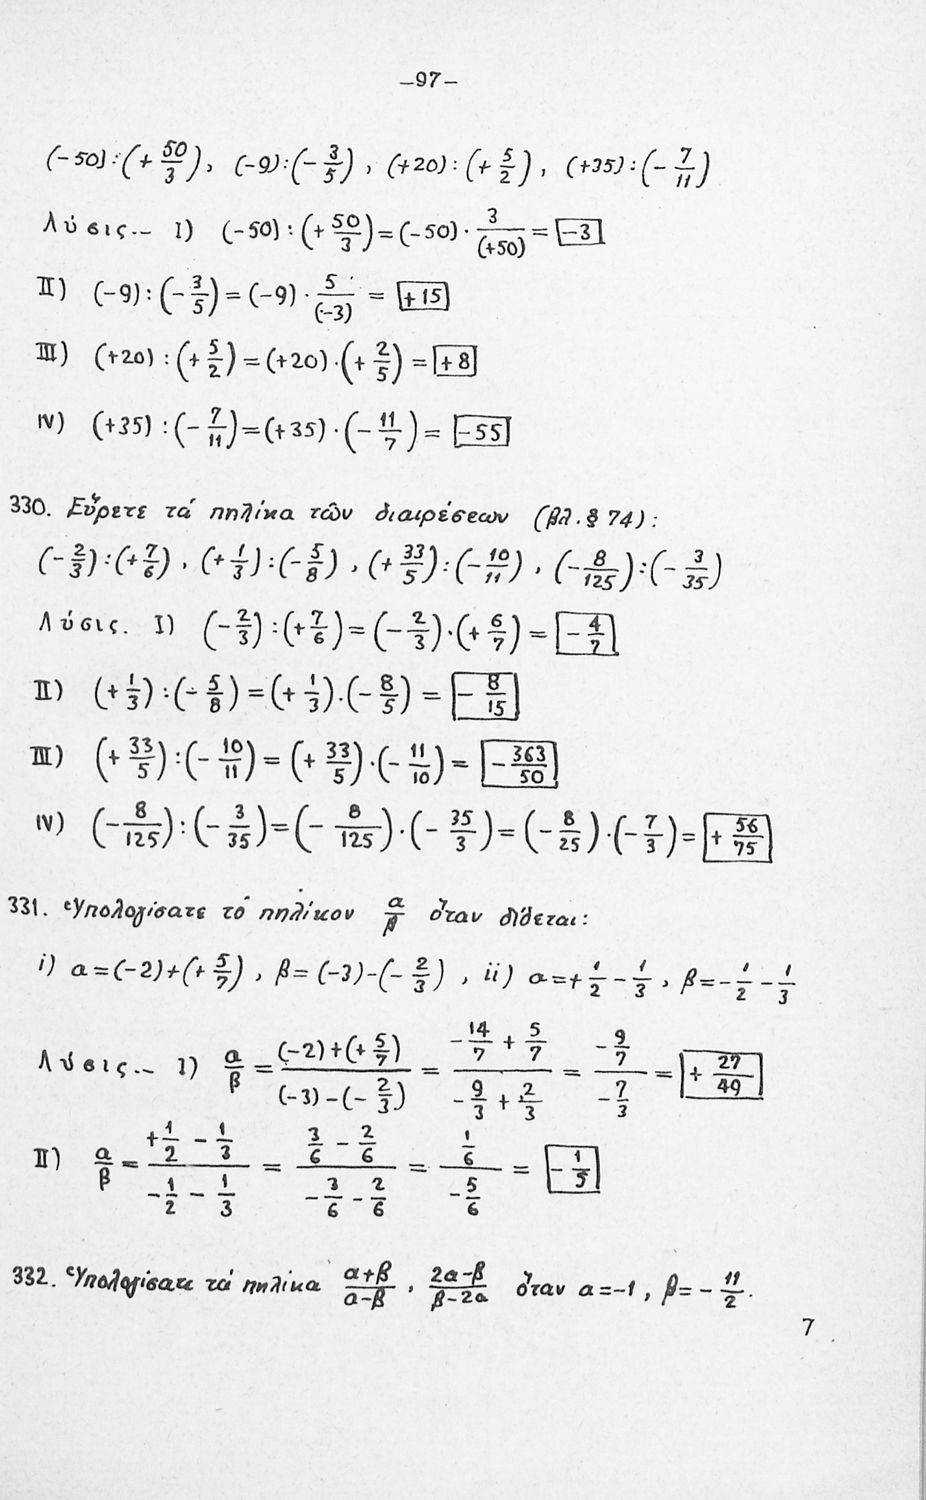 –97–
(–50):(+ 50/3), (–9):(– 3/5), (+20):(+ 5/2), (+35):(– 7/11)
Λύσις.– I) (–50):(+ 50/3)=(–50)· 3/(+50) = –3
II) (–9):(– 3/5)=(–9)· 5/(–3) = +15
III) (+20):(+ 5/2)=(+20)·(+ 2/5) = +8
IV) (+35):(– 7/11)=(+35)·(– 11/7) = –55
330. Εὕρετε τά πηλίκα τῶν διαιρέσεων (βλ. § 74):
(– 2/3):(+ 7/6), (+ 1/3):(– 5/8), (+ 33/5):(– 10/11), (– 8/125):(– 3/35)
Λύσις. I) (– 2/3):(+ 7/6)=(– 2/3)·(+ 6/7) = – 4/7
II) (+ 1/3):(– 5/8)=(+ 1/3)·(– 8/5) = – 8/15
III) (+ 33/5):(– 10/11)=(+ 33/5)·(– 11/10) = – 363/50
IV) (– 8/125):(– 3/35)=(– 8/125)·(– 35/3)=(– 8/25)·(– 7/3)= + 56/75
331. Ὑπολογίσατε τό πηλίκον α/β ὅταν δίδεται:
i) α=(–2)+(+ 5/7), β=(–3)–(– 2/3), ii) α=+ 1/2 – 1/3, β=– 1/2 – 1/3
Λύσις.– I) α/β = ((–2)+(+ 5/7))/((–3)–(– 2/3)) = (– 14/7 + 5/7)/(– 9/3 + 2/3) = (– 9/7)/(– 7/3) = + 27/49
II) α/β = (+ 1/2 – 1/3)/(– 1/2 – 1/3) = (3/6 – 2/6)/(– 3/6 – 2/6) = (1/6)/(– 5/6) = – 1/5
332. Ὑπολογίσατε τά πηλίκα (α+β)/(α–β), (2α–β)/(β–2α) ὅταν α=–1, β=– 11/2.
7